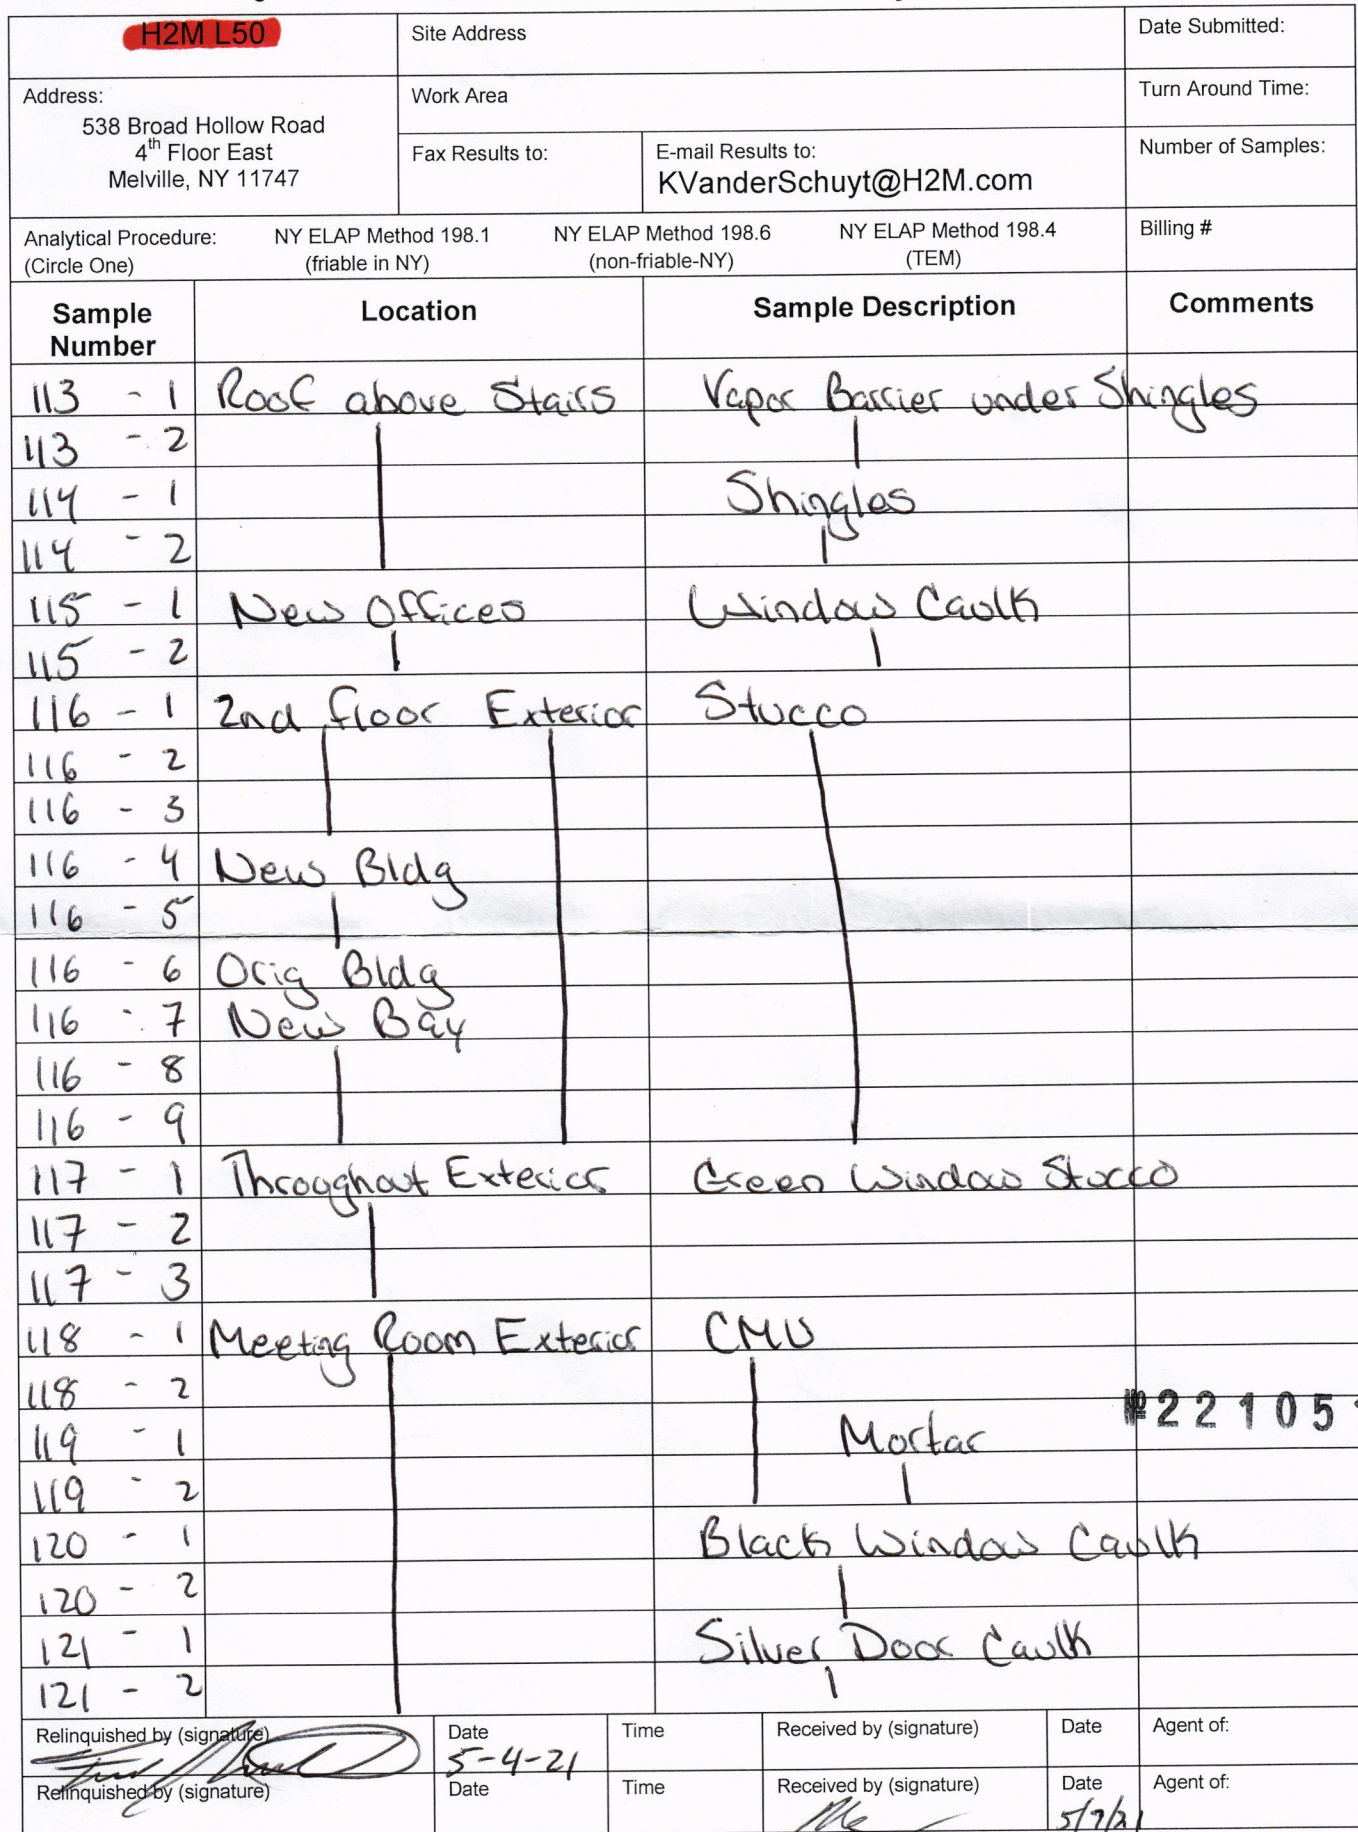 H2M L50
Site Address
Date Submitted:
Address:
538 Broad Hollow Road
4th Floor East
Melville, NY 11747
Work Area
Turn Around Time:
Fax Results to:
E-mail Results to:
KVanderSchuyt@H2M.com
Number of Samples:
Analytical Procedure: NY ELAP Method 198.1 NY ELAP Method 198.6 NY ELAP Method 198.4
(Circle One) (friable in NY) (non-friable-NY) (TEM)
Billing #
Sample Number Location Sample Description Comments
113 - 1 Roof above Stairs Vapor Barrier under Shingles
113 - 2
114 - 1 Shingles
114 - 2
115 - 1 New Offices Window Caulk
115 - 2
116 - 1 2nd floor Exterior Stucco
116 - 2
116 - 3
116 - 4 New Bldg
116 - 5
116 - 6 Orig Bldg
116 - 7 New Bay
116 - 8
116 - 9
117 - 1 Throughout Exterior Green Window Stucco
117 - 2
117 - 3
118 - 1 Meeting Room Exterior CMU
118 - 2
№ 22105
119 - 1 Mortar
119 - 2
120 - 1 Black Window Caulk
120 - 2
121 - 1 Silver Door Caulk
121 - 2
Relinquished by (signature) Date Time Received by (signature) Date Agent of:
5-4-21
Relinquished by (signature) Date Time Received by (signature) Date Agent of:
5/7/21